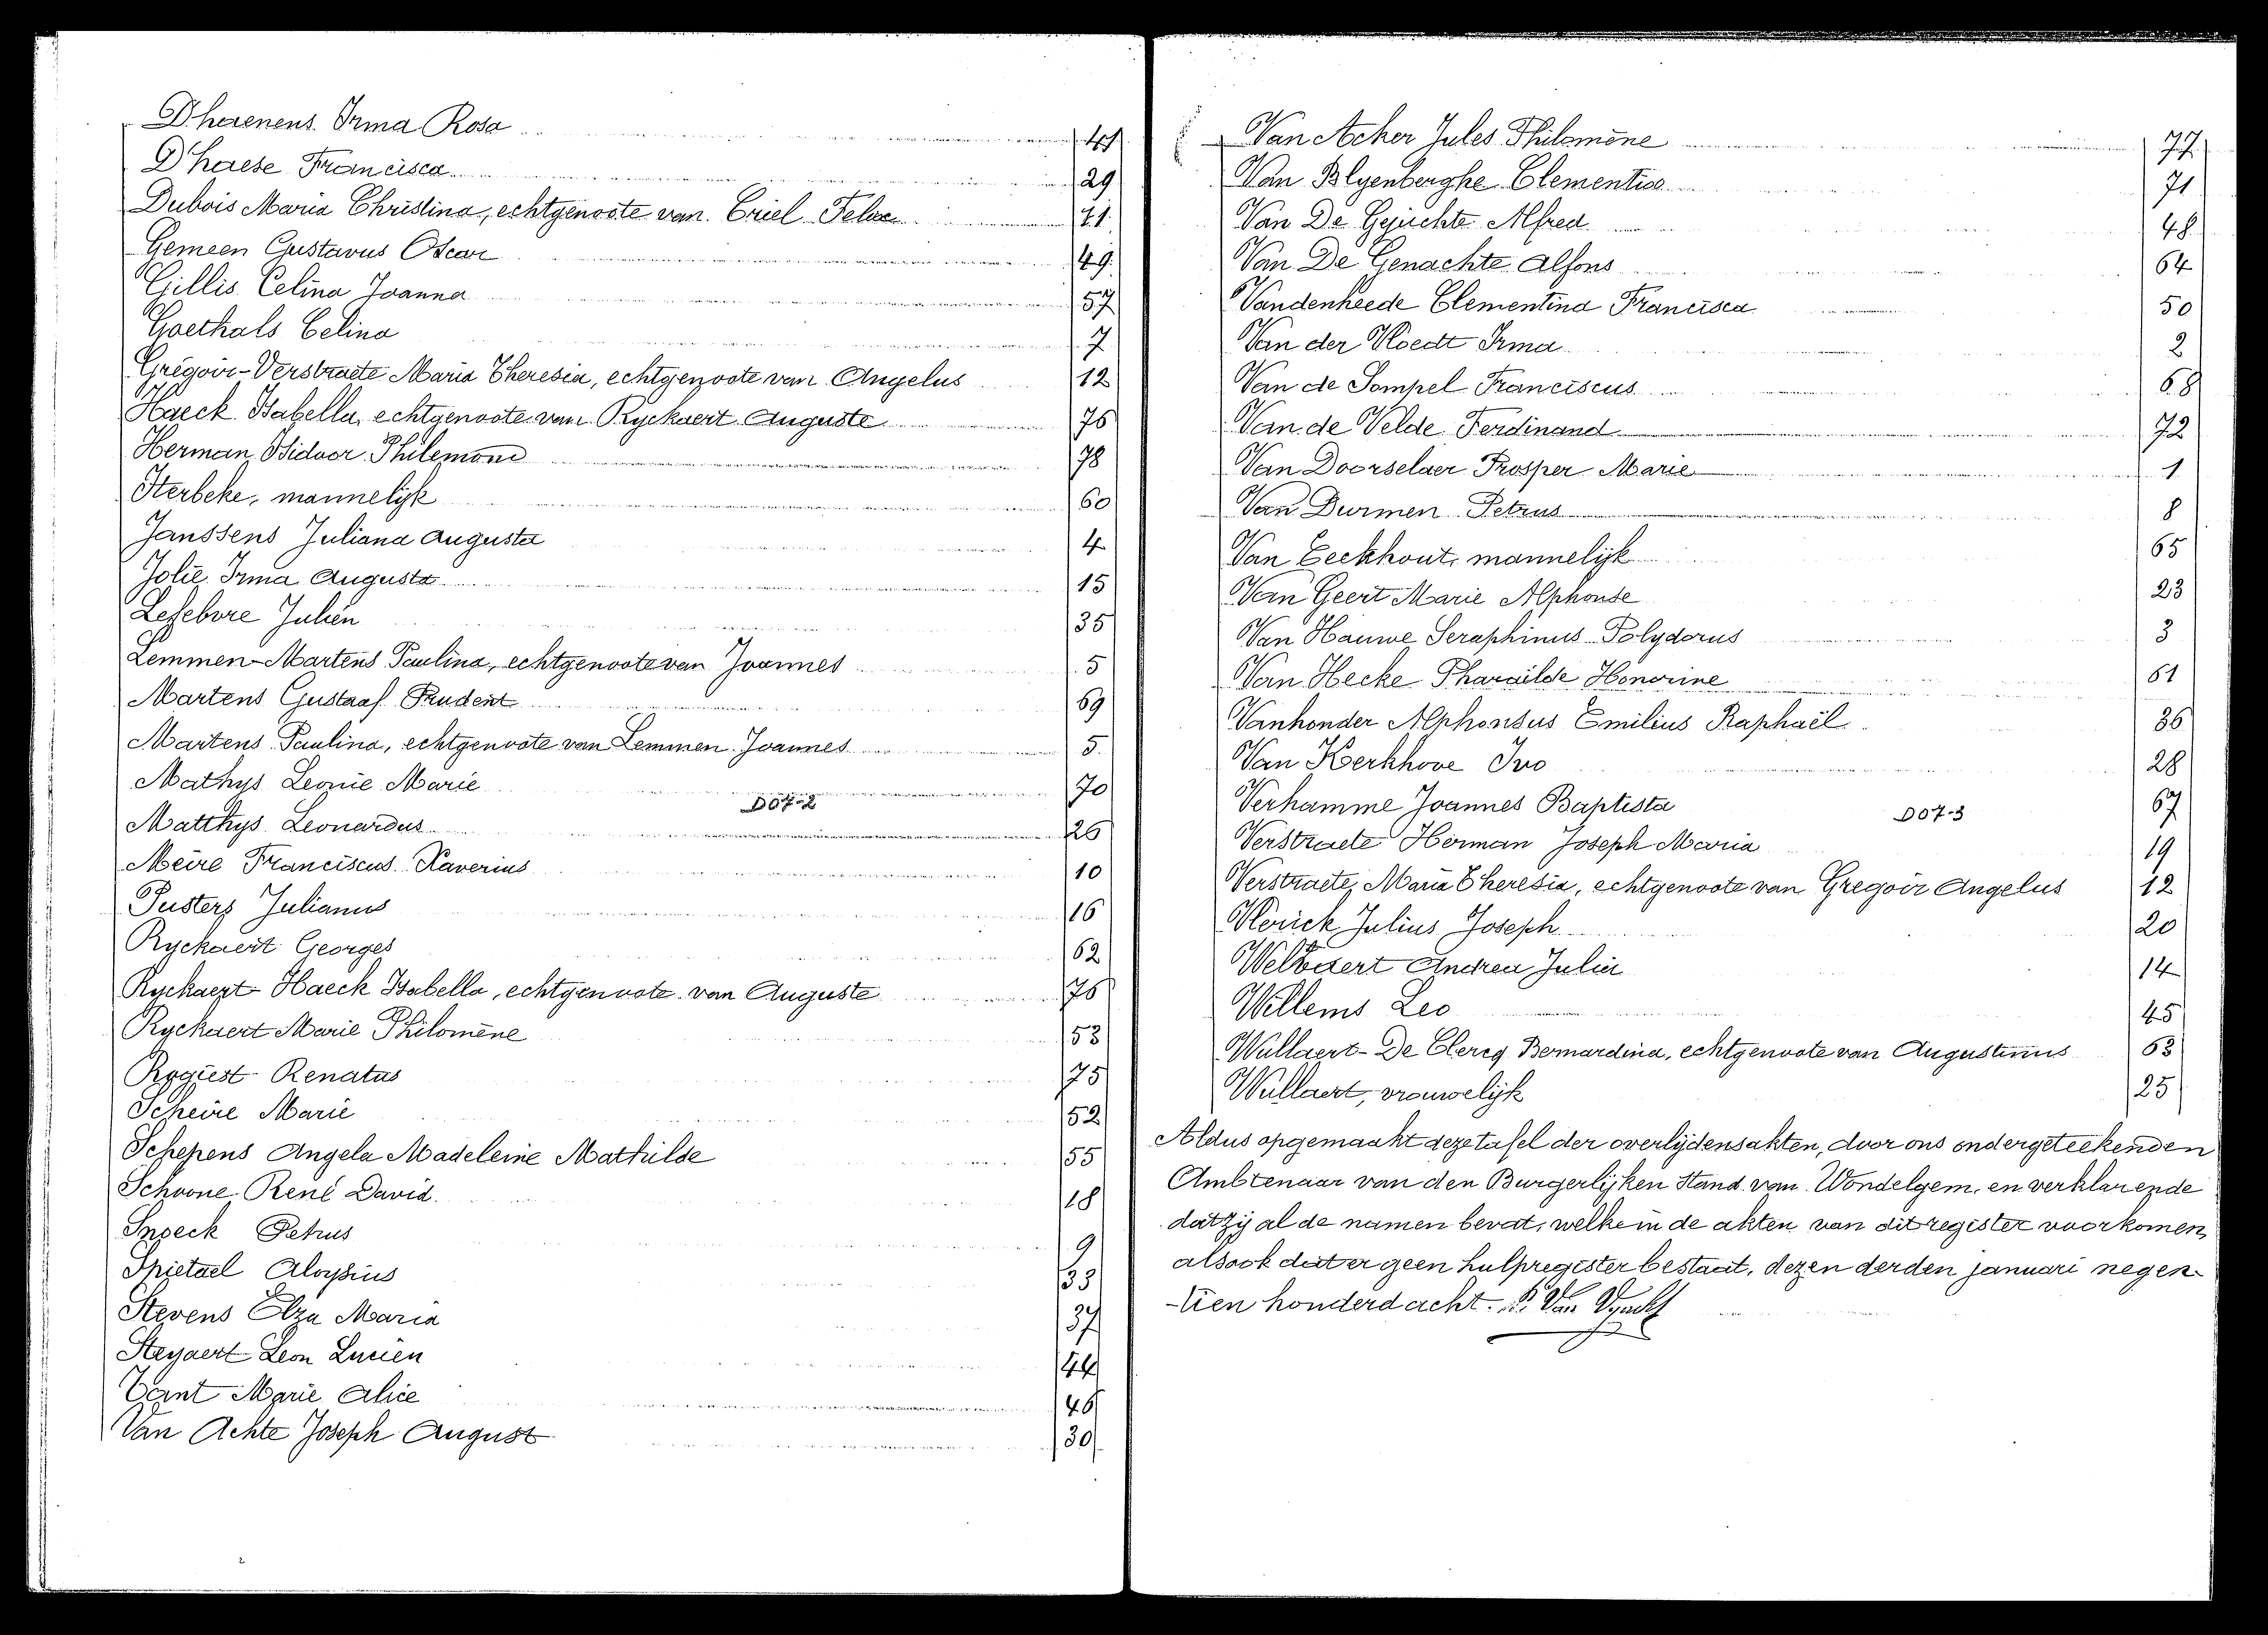 Dherenens Irma Rosa 41
D'haese Francisca 29
Dubois Maria Christina, echtgenoote van Criel Felix 21
Gemeen Gustavus Oscar 49
Gillis Celina Joanna 57
Goethals Celina 7
Grégoir-Verstraete Maria Theresia, echtgenoote van Angelus 12
Haeck Isabella, echtgenoote van Ryckaert Auguste 76
Herman Isidoor Philemon 78
Iterbeke, mannelijk 60
Janssens Juliana Augusta 4
Jolie Irma Augusta 15
Lefebvre Julien 35
Lemmen-Martens Paulina, echtgenoote van Joannes 5
Martens Gustaaf Prudent 69
Martens Paulina, echtgenoote van Lemmen Joannes 5
Mathys Leonie Marie 70
D07-2
Matthys Leonardus 26
Meire Franciscus Xaverius 10
Pusters Julianus 16
Ryckaert Georges 62
Ryckaert-Haeck Isabella, echtgenoote van Auguste 76
Ryckaert Marie Philomène 53
Rogiest Renatus 75
Scheire Marie 52
Schepens Angela Madeleine Mathilde 55
Schoone René David 18
Snoeck Petrus 9
Spietael Aloysius 33
Stevens Elza Maria 37
Steyaert Leon Lucien 44
Tant Marie Alice 46
Van Achte Joseph August 30
Van Acker Jules Philomène 77
Van Blyenberghe Clementia 71
Van De Gejuchte Alfred 48
Van De Genachte Alfons 64
Vandenheede Clementina Francisca 50
Van der Vloedt Irma 2
Van de Sompel Franciscus 68
Van de Velde Ferdinand 72
Van Doorselaer Prosper Marie 1
Van Durmen Petrus 8
Van Eeckhout, mannelijk 65
Van Geert Marie Alphonse 23
Van Hauwe Seraphinus Polydorus 3
Van Hecke Pharaïlde Honorine 61
Vanhonder Alphonsus Emilius Raphaël 36
Van Kerkhove Ivo 28
Verhamme Joannes Baptista 67
D07-3
Verstraete Herman Joseph Maria 19
Verstraete Maria Theresia, echtgenoote van Gregoir Angelus 12
Vlerick Julius Joseph 20
Welvaert Andrea Julia 14
Willems Leo 45
Wullaert-De Clercq Bernardina, echtgenoote van Augustinus 63
Wullaert, vrouwelijk 25
Aldus opgemaakt deze tafel der overlijdensakten, door ons ondergeteekenden
Ambtenaar van den Burgerlijken Stand van Wondelgem, en verklarende
dat zij al de namen bevat, welke in de akten van dit register voorkomen,
alsook dat er geen hulpregister bestaat, dezen derden januari negen-
-tien honderd acht.